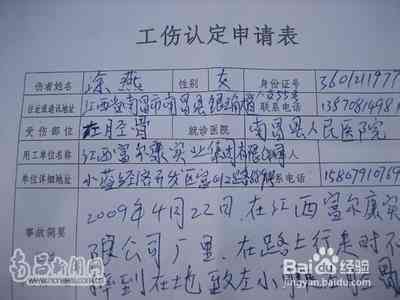 工伤认定申请表
伤者姓名 涂燕 性别 女 身份证号 3601211977
住址或通讯地址 江西省南昌市南昌县 联系电话 1387081498
受伤部位 左胫骨 就诊医院 南昌县人民医院
用工单位名称 江西富尔康实业集团有限 人
单位详细地址 小蓝经济开发区 联系电话 1586791076
事故简要 2009年4月22日,在江西富尔康实
限公司厂里,在路上行走时不
掉到在地 致左小 骨
南昌新闻网
Baidu百度经验